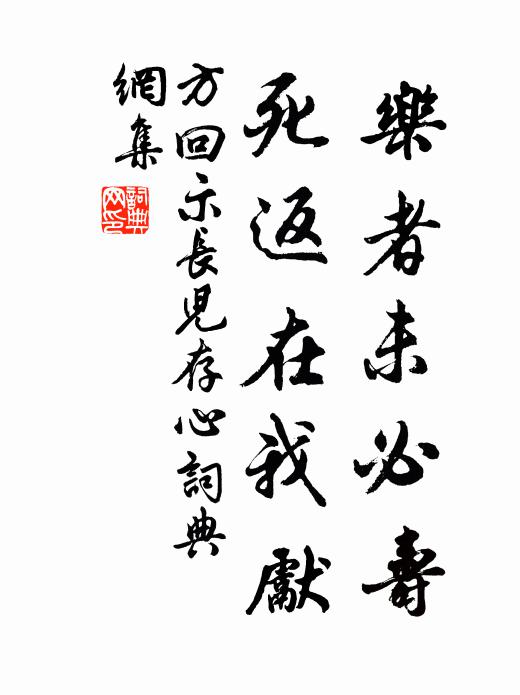 樂者未必壽
死返在我獻
方回示長兒存心詞典
網集
詞典網印